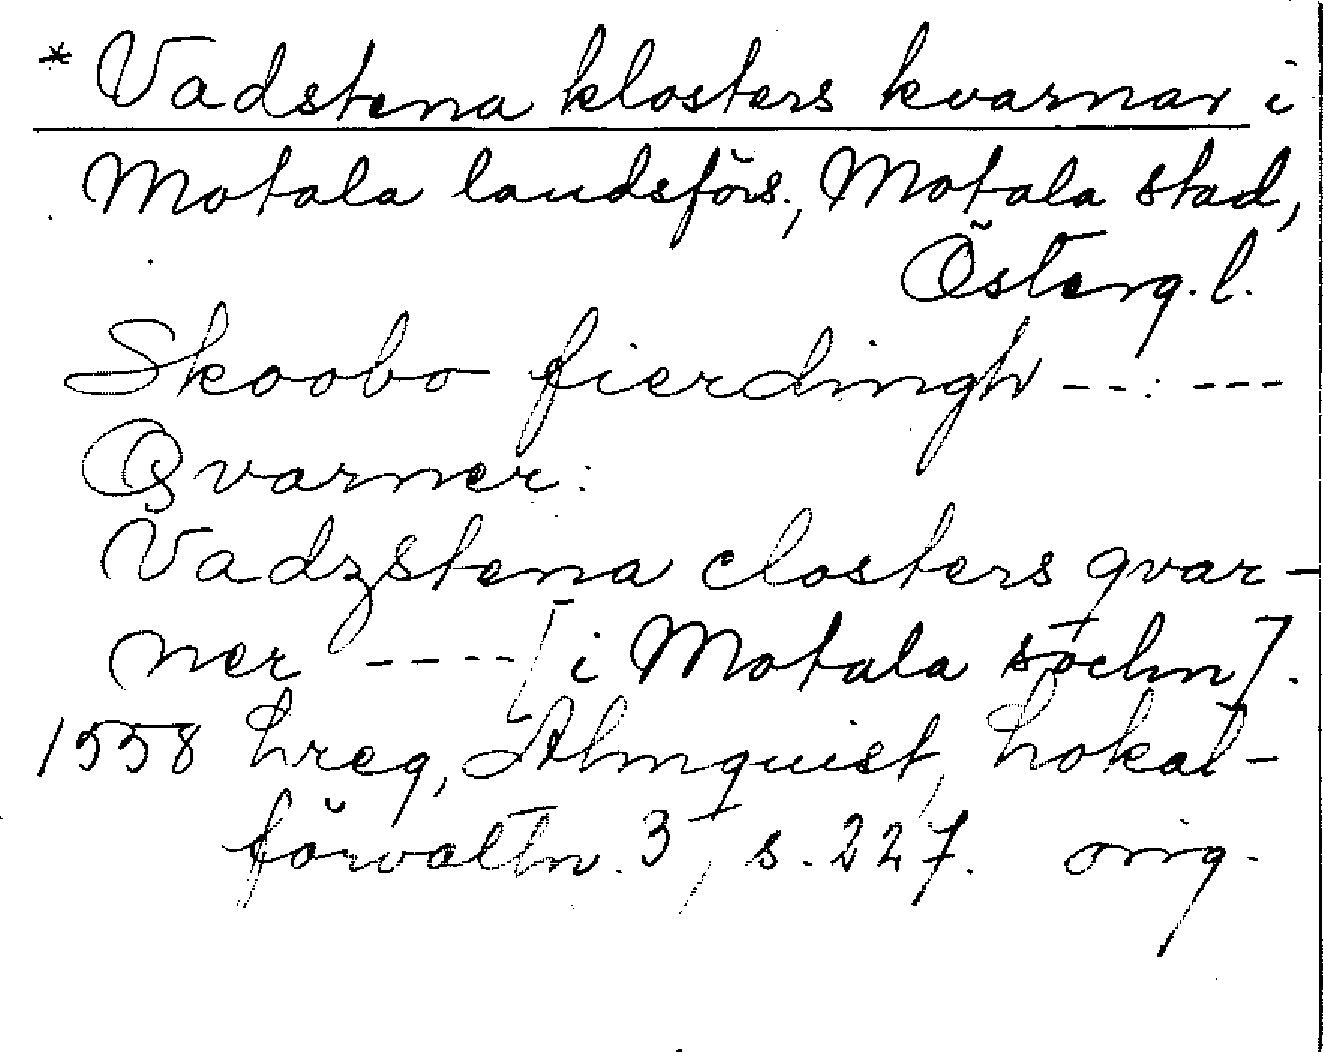 * Vadstena klosters kvarnar i
Motala landsförs., Motala stad,
Österg. l.
Skoobo fierdingh --:---
Qvarner:
Vadzstena closters qvar-
ner ---- [i Motala sochn].
1558 hreg, Almquist, Lokal-
förvaltn. 3, s. 227. orig.